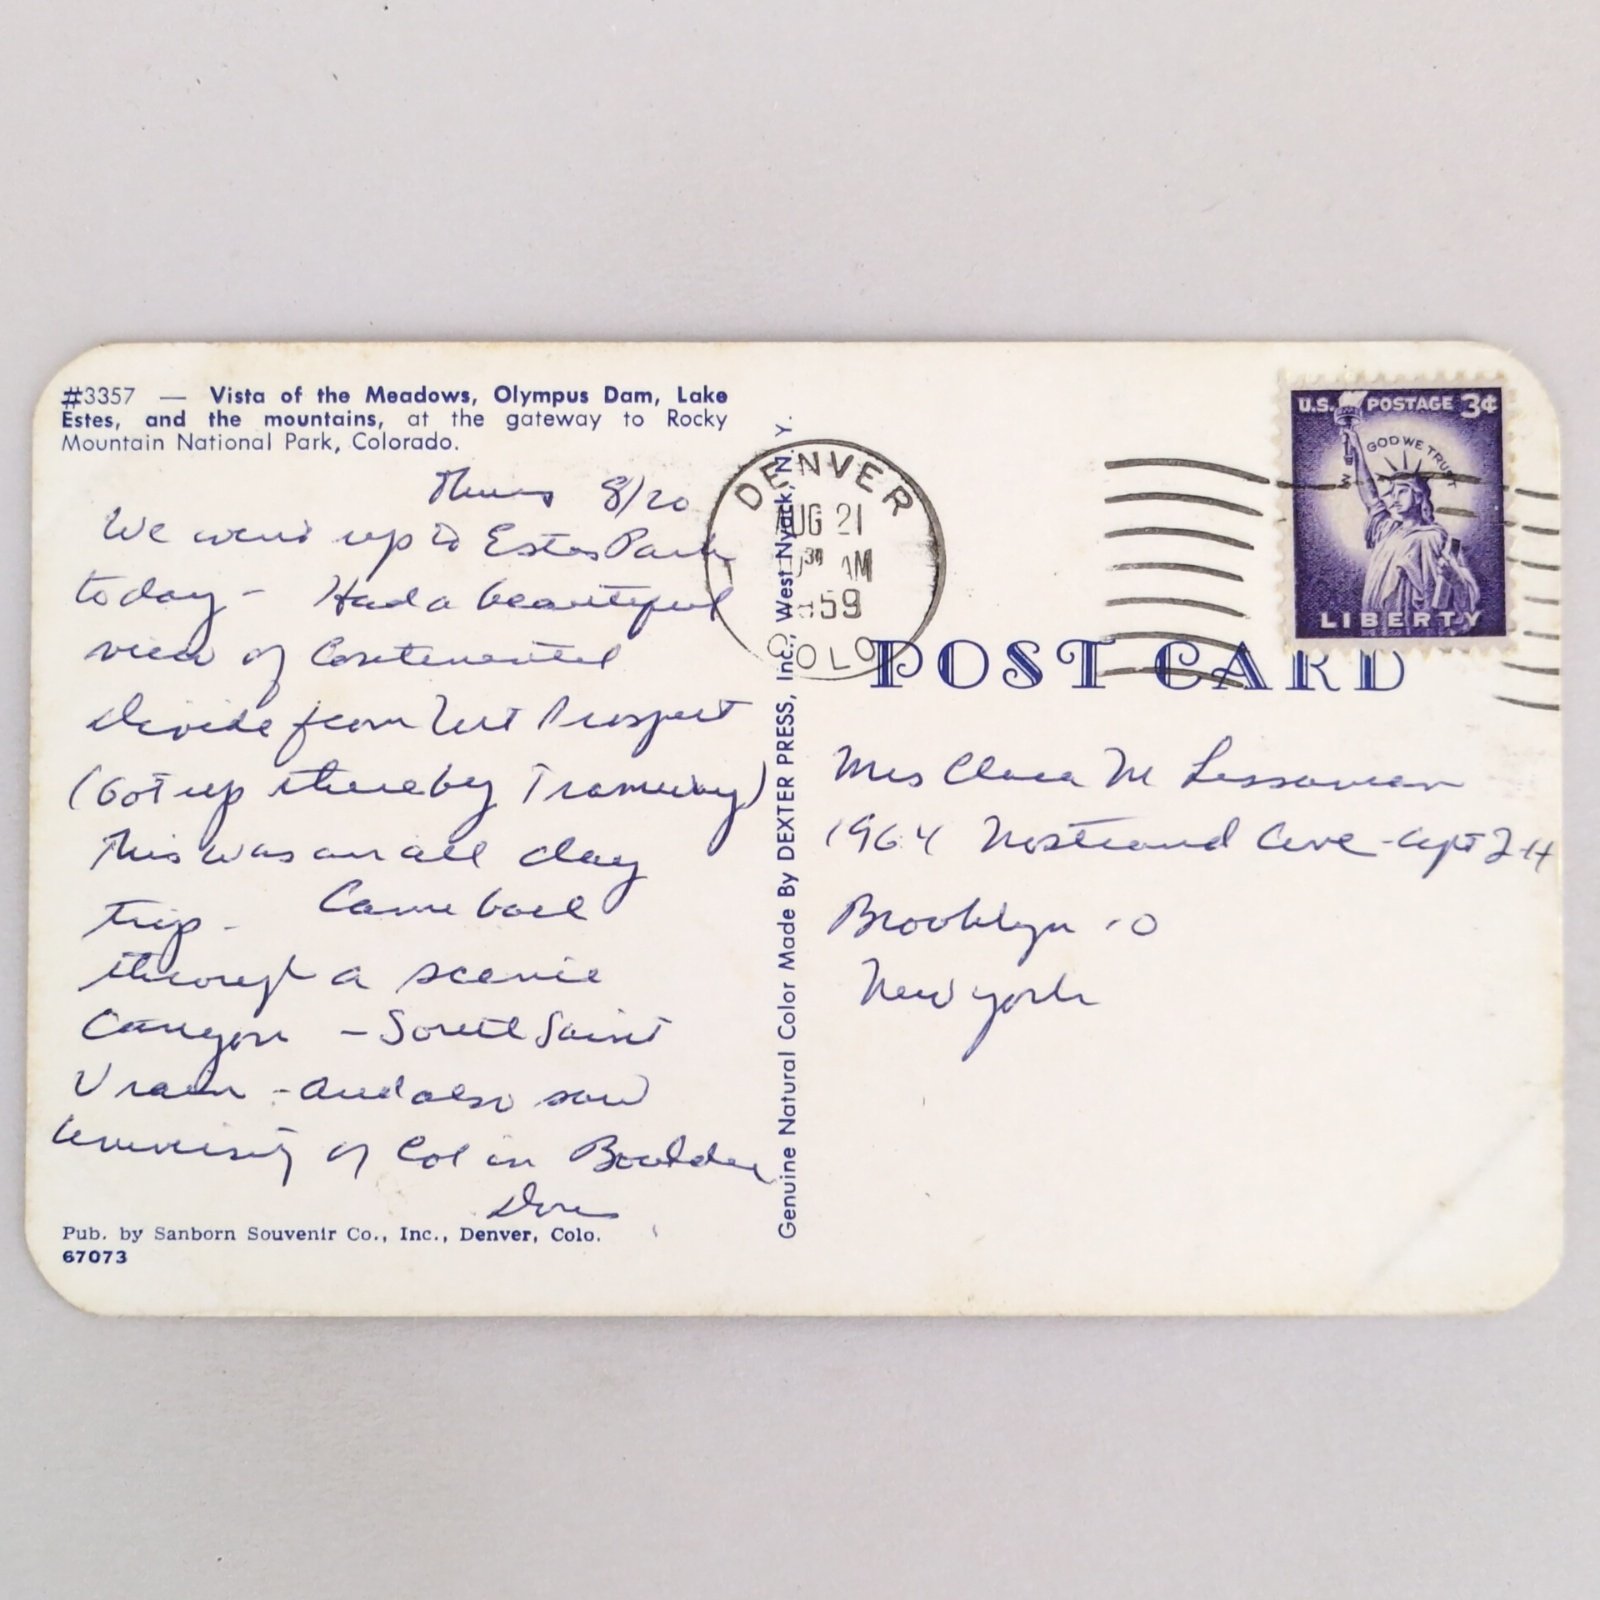 #3357 — Vista of the Meadows, Olympus Dam, Lake
Estes, and the mountains, at the gateway to Rocky
Mountain National Park, Colorado.
Thurs 8/20
We went up to Estes Park
today - Had a beautiful
view of Continental
Divide from Mt Prospect
(Got up there by Tramway)
This was an all day
trip - Came back
through a scenic
Canyon - South Saint
Vrain - and also saw
University of Col in Boulder
Pub. by Sanborn Souvenir Co., Inc., Denver, Colo.
67073
Genuine Natural Color Made By DEXTER PRESS, Inc., West Nyack, N. Y.
DENVER
AUG 21
30 AM
1959
COLO
U.S. POSTAGE 3¢
IN GOD WE TRUST
LIBERTY
POST CARD
Mrs Clara M
1964 Nostrand Ave - Apt 2H
Brooklyn 10
New York